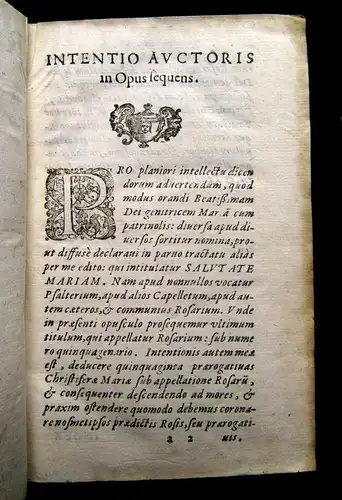 INTENTIO AVCTORIS
in Opus sequens.
PRO planiori intellectu dicen
dorum advertendum, quod
modus orandi Beatißimam
Dei genitricem Mariã cum
patrinolis: diversa apud di-
versos sortitur nomina, pro-
ut diffusè declarani in paruo tractatu aliàs
per me edito: qui intitulatur SALVTATE
MARIAM. Nam apud nonnullos vocatur
Psalterium, apud alios Capelletum, apud au-
tem cæteros, & communius Rosarium. Vnde
in præsenti opusculo prosequemur vltimum
titulum, qui appellatur Rosarium: sub nume
ro quinquagenario. Intentionis autem meæ
est, deducere quinquaginta prærogatiuas
Christiferæ Mariæ sub appellatione Rosarũ,
& consequenter descendendo ad mores, &
praxim ostendere quomodo debemus corona-
re nosmetipsos prædictis Rosis, seu prærogati-
a 2 uis.